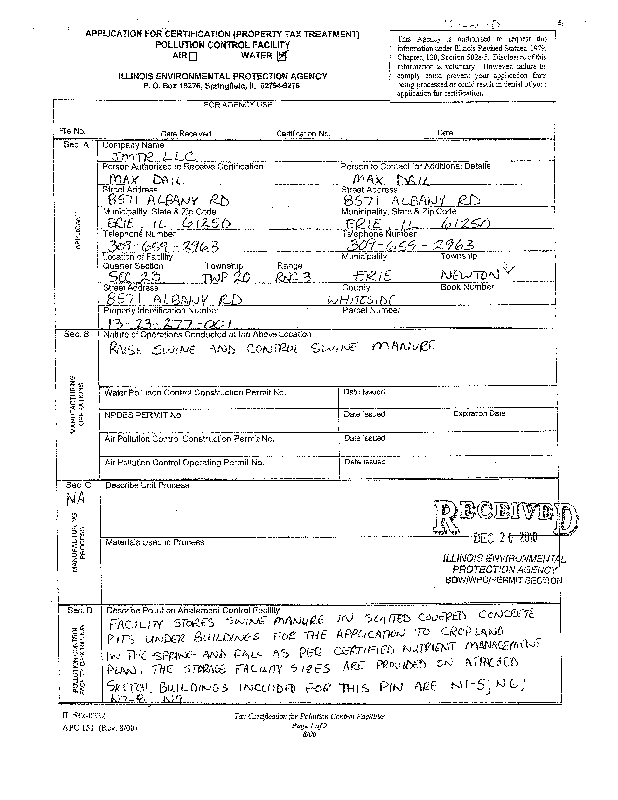 APPLICATION FOR CERTIFICATION (PROPERTY TAX TREATMENT)
POLLUTION CONTROL FACILITY
AIR ☐ WATER ☒
ILLINOIS ENVIRONMENTAL PROTECTION AGENCY
P. O. Box 19276, Springfield, IL 62794-9276
This Agency is authorized to request this
information under Illinois Revised Statutes, 1979,
Chapter 120, Section 502a-5. Disclosure of this
information is voluntary. However, failure to
comply could prevent your application from
being processed or could result in denial of your
application for certification.
FOR AGENCY USE
File No. Date Received Certification No. Date
Sec. A Company Name
JMTR LLC
Person Authorized to Receive Certification Person to Contact for Additional Details
MAX DAIL MAX DAIL
Street Address Street Address
8571 ALBANY RD 8571 ALBANY RD
Municipality, State & Zip Code Municipality, State & Zip Code
ERIE IL 61250 ERIE IL 61250
Telephone Number Telephone Number
309-659-2963 309-659-2963
APPLICANT
Location of Facility Municipality Township
Quarter Section Township Range
SEC 23 TWP 20 RNG 3 ERIE NEWTON
Street Address County Book Number
8571 ALBANY RD WHITESIDE
Property Identification Number Parcel Number
13-23-277-001
Sec. B Nature of Operations Conducted at the Above Location
RAISE SWINE AND CONTROL SWINE MANURE
MANUFACTURING
OPERATIONS
Water Pollution Control Construction Permit No. Date Issued
NPDES PERMIT No. Date Issued Expiration Date
Air Pollution Control Construction Permit No. Date Issued
Air Pollution Control Operating Permit No. Date Issued
Sec. C Describe Unit Process
NA
MANUFACTURING
PROCESS
Materials Used in Process
RECEIVED
DEC 20 2010
ILLINOIS ENVIRONMENTAL
PROTECTION AGENCY
BOW/WPC/PERMIT SECTION
Sec. D Describe Pollution Abatement Control Facility
FACILITY STORES SWINE MANURE IN SLATTED COVERED CONCRETE
PITS UNDER BUILDINGS FOR THE APPLICATION TO CROPLAND
IN THE SPRING AND FALL AS PER CERTIFIED NUTRIENT MANAGEMENT
PLAN. THE STORAGE FACILITY SIZES ARE PROVIDED ON ATTACHED
SKETCH. BUILDINGS INCLUDED FOR THIS PIN ARE N1-5; N6;
Tax Certification for Pollution Control Facilities
APC 151 (Rev. 8/00) Page 1 of 2
8/00